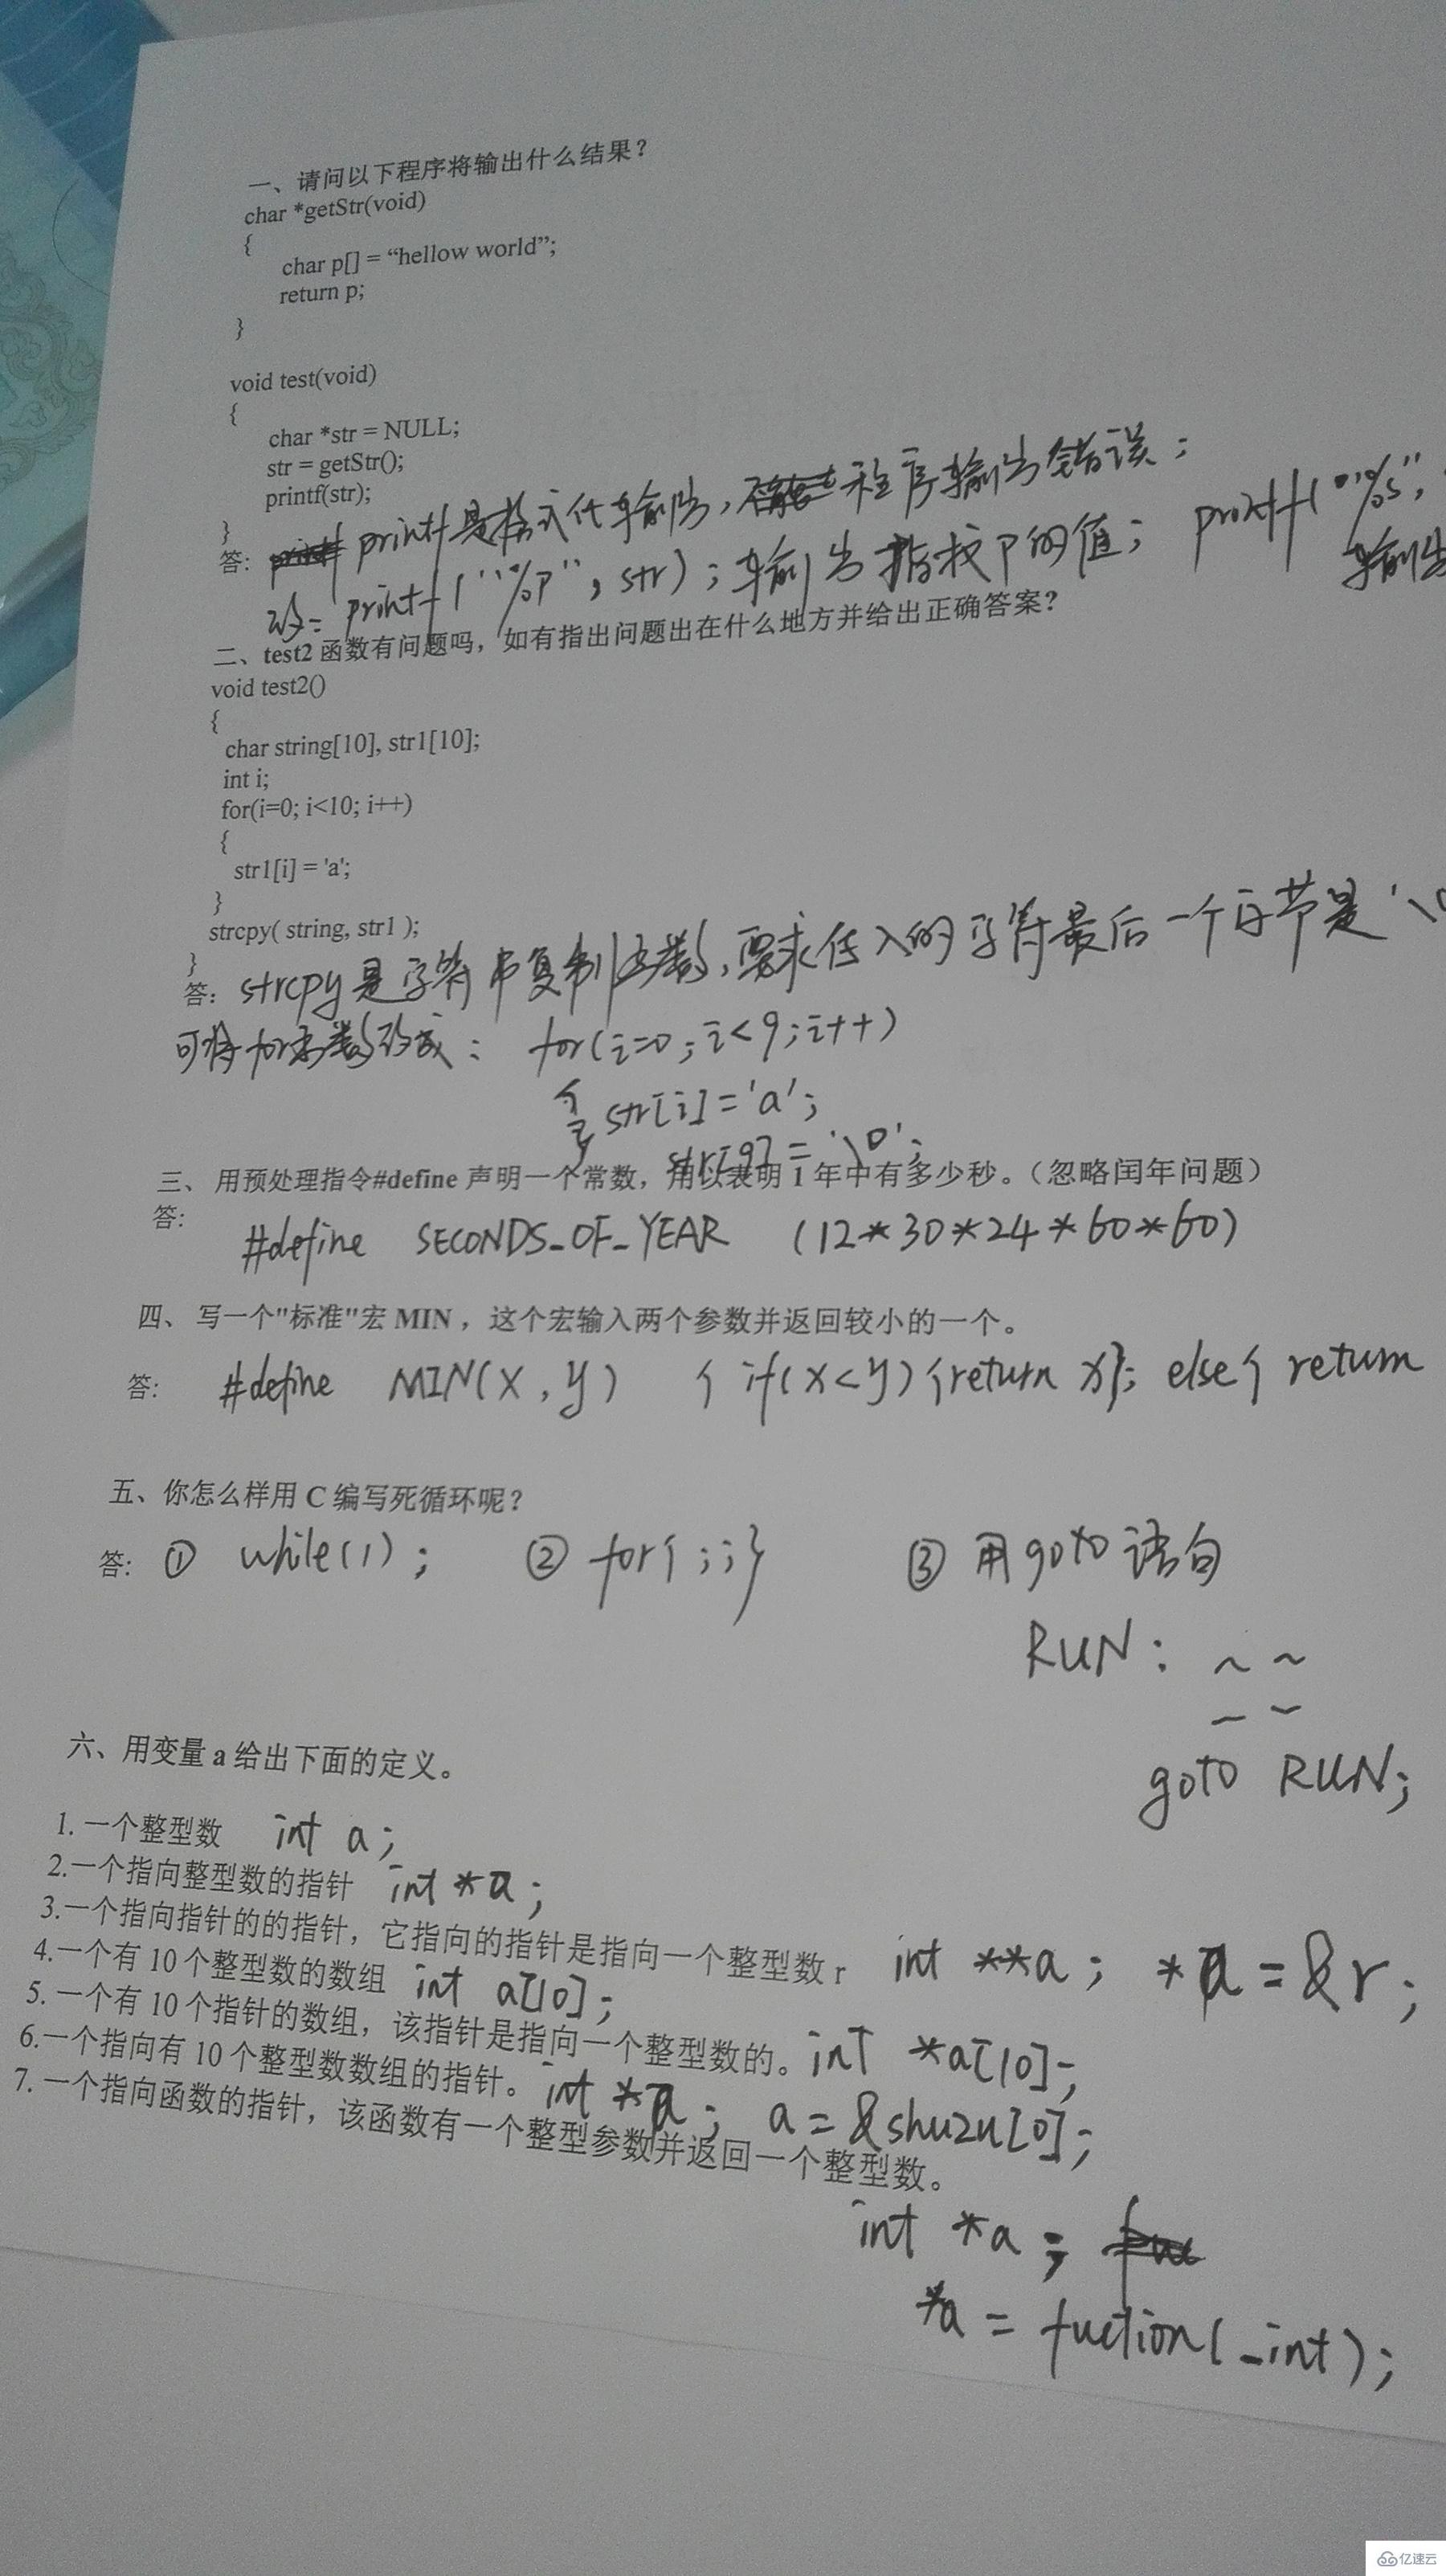 一、请问以下程序将输出什么结果？
char *getStr(void)
{
char p[] = “hellow world”;
return p;
}
void test(void)
{
char *str = NULL;
str = getStr();
printf(str);
}
答: printf是格式化输出, 程序输出错误;
printf("%p", str); 输出指找P的值; printf("%s",
输出
二、test2 函数有问题吗，如有指出问题出在什么地方并给出正确答案？
void test2()
{
char string[10], str1[10];
int i;
for(i=0; i<10; i++)
{
str1[i] = 'a';
}
strcpy( string, str1 );
}
答: strcpy是字符串复制函数,要求传入的字符最后一个字节是'\0
可将for函数改成: for(i=0;i<9;i++)
{ str[i]='a';
str[9]='\0';
三、 用预处理指令#define 声明一个常数，用以表明 1 年中有多少秒。（忽略闰年问题）
答:
#define SECONDS_OF_YEAR (12*30*24*60*60)
四、 写一个"标准"宏 MIN ，这个宏输入两个参数并返回较小的一个。
答: #define MIN(X,y) { if(x<y){return x}; else{ return
五、你怎么样用 C 编写死循环呢？
答: ① while(1); ② for{;;} ③ 用goto语句
RUN: ~ ~
goto RUN;
六、用变量 a 给出下面的定义。
1. 一个整型数 int a;
2.一个指向整型数的指针 int *a;
3.一个指向指针的的指针，它指向的指针是指向一个整型数 r int **a; *a=&r;
4.一个有 10 个整型数的数组 int a[10];
5. 一个有 10 个指针的数组，该指针是指向一个整型数的。int *a[10];
6.一个指向有 10 个整型数数组的指针。int *a; a=&shuzu[0];
7. 一个指向函数的指针，该函数有一个整型参数并返回一个整型数。
int *a;
*a = fuction(_int);
亿速云